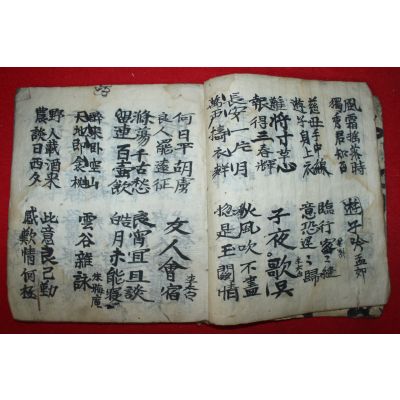 風霜搖落時
獨秀君知否
遊子吟 孟郊
慈母手中線
遊子身上衣
臨行密〻縫
意恐遲〻歸
難將寸草心
報得三春輝
子夜歌吳 李太白
長安一片月
萬戶擣衣聲
秋風吹不盡
總是玉關情
何日平胡虜
良人罷遠征
友人會宿 李太白
滌蕩千古愁
留連百壺飮
良宵宜且談
皓月未能寢
醉來臥空山
天地卽衾枕
雲谷雜詠 朱晦庵
野人載酒來
農談日西夕
此意良已勤
感歎情何極